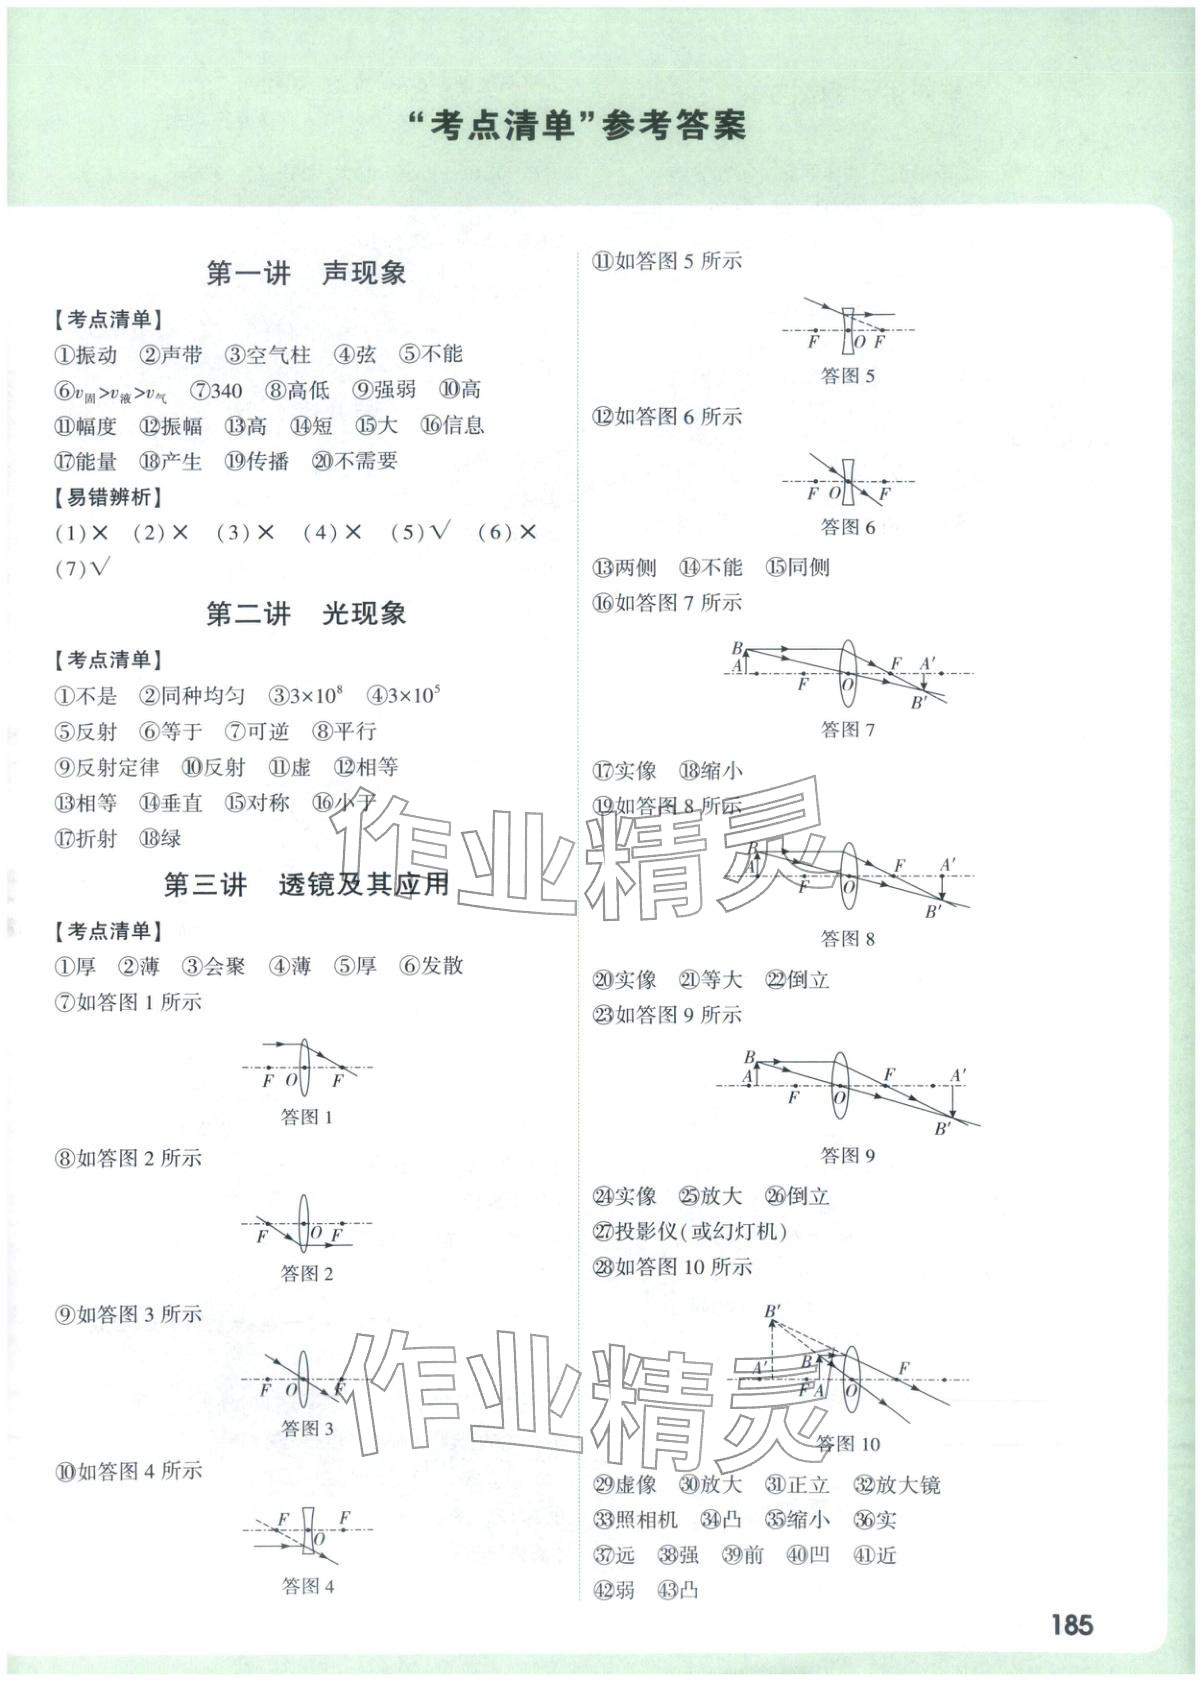 “考点清单”参考答案
第一讲 声现象
【考点清单】
①振动 ②声带 ③空气柱 ④弦 ⑤不能
⑥v固>v液>v气 ⑦340 ⑧高低 ⑨强弱 ⑩高
⑪幅度 ⑫振幅 ⑬高 ⑭短 ⑮大 ⑯信息
⑰能量 ⑱产生 ⑲传播 ⑳不需要
【易错辨析】
(1)× (2)× (3)× (4)× (5)√ (6)×
(7)√
第二讲 光现象
【考点清单】
①不是 ②同种均匀 ③3×10⁸ ④3×10⁵
⑤反射 ⑥等于 ⑦可逆 ⑧平行
⑨反射定律 ⑩反射 ⑪虚 ⑫相等
⑬相等 ⑭垂直 ⑮对称 ⑯小于
⑰折射 ⑱绿
第三讲 透镜及其应用
【考点清单】
①厚 ②薄 ③会聚 ④薄 ⑤厚 ⑥发散
⑦如答图 1 所示
F O F
答图 1
⑧如答图 2 所示
F O F
答图 2
⑨如答图 3 所示
F O F
答图 3
⑩如答图 4 所示
F F
O
答图 4
⑪如答图 5 所示
F O F
答图 5
⑫如答图 6 所示
F O F
答图 6
⑬两侧 ⑭不能 ⑮同侧
⑯如答图 7 所示
B
A F O F A′
B′
答图 7
⑰实像 ⑱缩小
⑲如答图 8 所示
B
A F O F A′
B′
答图 8
⑳实像 ㉑等大 ㉒倒立
㉓如答图 9 所示
B
A F O F A′
B′
答图 9
㉔实像 ㉕放大 ㉖倒立
㉗投影仪(或幻灯机)
㉘如答图 10 所示
B′
B
A′ F A O F
答图 10
㉙虚像 ㉚放大 ㉛正立 ㉜放大镜
㉝照相机 ㉞凸 ㉟缩小 ㊱实
㊲远 ㊳强 ㊴前 ㊵凹 ㊶近
㊷弱 ㊸凸
185
作业精灵
作业精灵